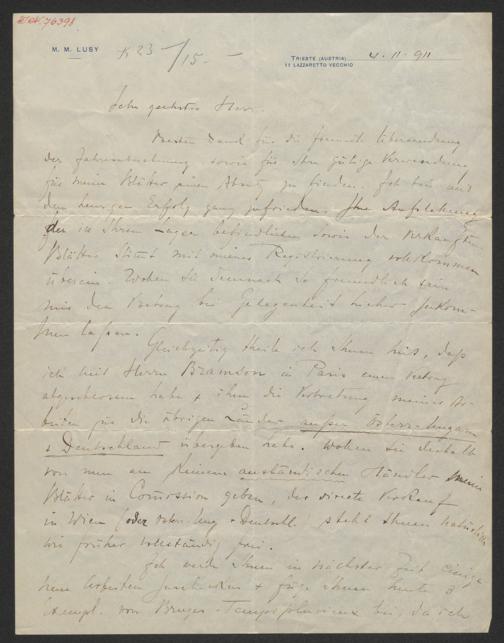 M. M. LUSY
K 23/15.-
TRIESTE (AUSTRIA)
11 LAZZARETTO VECCHIO
4. 11. 911
Sehr geehrter Herr.
Besten Dank für die freundl. Übersendung
der Jahresrechnung sowie für Ihre gütige Verwendung
für meine Blätter einen Absatz zu finden. Ich bin mit
dem heurigen Erfolg ganz zufrieden. Ihre Aufstellung
der in Ihrem Lager befindlichen sowie der verkauften
Blätter stimmt mit meiner Registrierung vollkommen
überein. Wollen Sie demnach so freundlich sein
mir den Betrag bei Gelegenheit hieher zukom-
men lassen.
Gleichzeitig theile ich Ihnen mit, daß
ich mit Herrn Bramson in Paris einen Vertrag
abgeschlossen habe & ihm die Vertretung meiner Ar-
beiten für die übrigen Länder außer Österr.-Ungarn
& Deutschland übergeben habe. Wollen Sie deshalb
von nun an keinem ausländischen Händler meine
Blätter in Comission geben, der directe Verkauf
in Wien (oder Östr.-Ung & Deutschl.) steht Ihnen natürlich
wie früher vollständig frei.
Ich werde Ihnen in nächster Zeit einige
neue Arbeiten & füge Ihnen heute 3
Exempl. von Bruges bei, da ich